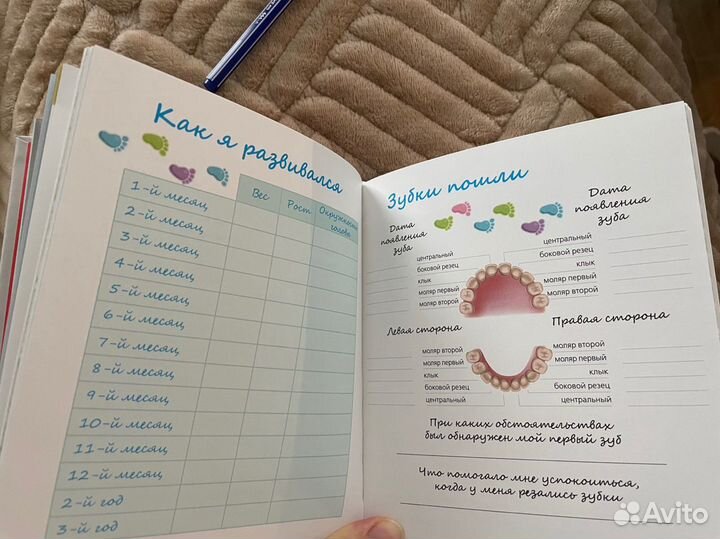 Как я развивался
Вес
Рост
голова
1-й месяц
2-й месяц
3-й месяц
4-й месяц
5-й месяц
6-й месяц
7-й месяц
8-й месяц
9-й месяц
10-й месяц
11-й месяц
12-й месяц
2-й год
3-й год
Зубки пошли
Дата
появления
зуба
Дата
появления
зуба
центральный
боковой резец
клык
моляр первый
моляр второй
центральный
боковой резец
клык
моляр первый
моляр второй
Левая сторона
Правая сторона
моляр второй
моляр первый
клык
боковой резец
центральный
моляр второй
моляр первый
клык
боковой резец
центральный
При каких обстоятельствах
был обнаружен мой первый зуб
Что помогало мне успокоиться,
когда у меня резались зубки
Avito